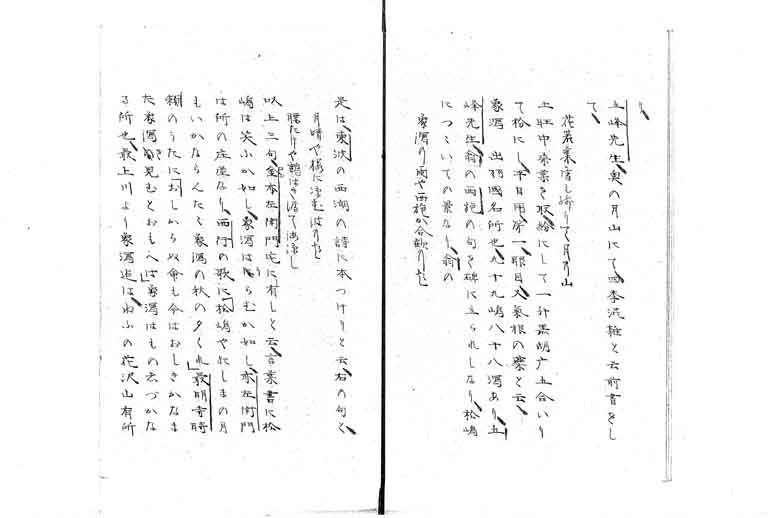 り
五峰先生奥の月山にて四季混雑と云前書をし
て
花若葉雪も添りて月の山
上旺中桒葉を取給にして一升黒胡广五合いり
て粉にし平日用第一眼目又氣根の薬と云
象潟 出羽國名所也九十九嶋八十八潟あり五
峰先生翁の西施の句を碑に立られしなり松嶋
につゝいての景なり翁の
象潟の雨や西施か合歓の花
是は東波の西湖の詩に本つけりと云右の句と
月晴や桜に浮む波の花
腰たけや鶴はき濡て海凉し
以上三句金本左衛門宅に有しと云言葉書に松
嶋は笑ふか如し象潟はうらむか如し亦左衛門
は所の庄屋なり西行の歌に「松嶋や雄しまの月
もいかならんたゝ象潟の秋の夕くれ」最明寺時
頼のうたに「おしからぬ命も今はおしきかなま
た象潟を見むとおもへは」象潟はもの云づかな
る所也最上川より象潟迄はねふの花沢山有所